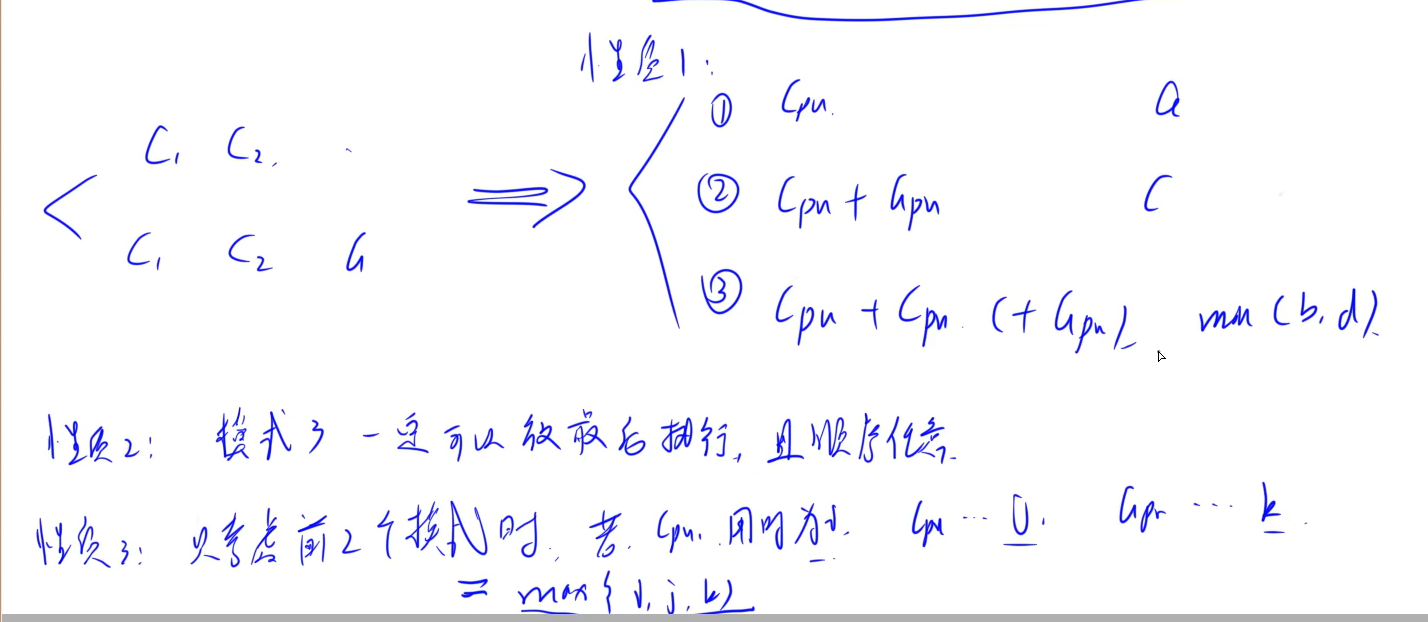 性质1:
① Cpu. a
C₁ C₂.
② Cpu + Gpu C
C₁ C₂ G
③ Cpu + Cpu (+ Gpu) min (b, d)
性质2: 模式3一定可以放最后执行, 且顺序任意.
性质3: 只考虑前2个模式时, 若 Cpu₁ 用时为i. Cpu … j. Gpu … k.
= max{i, j, k}